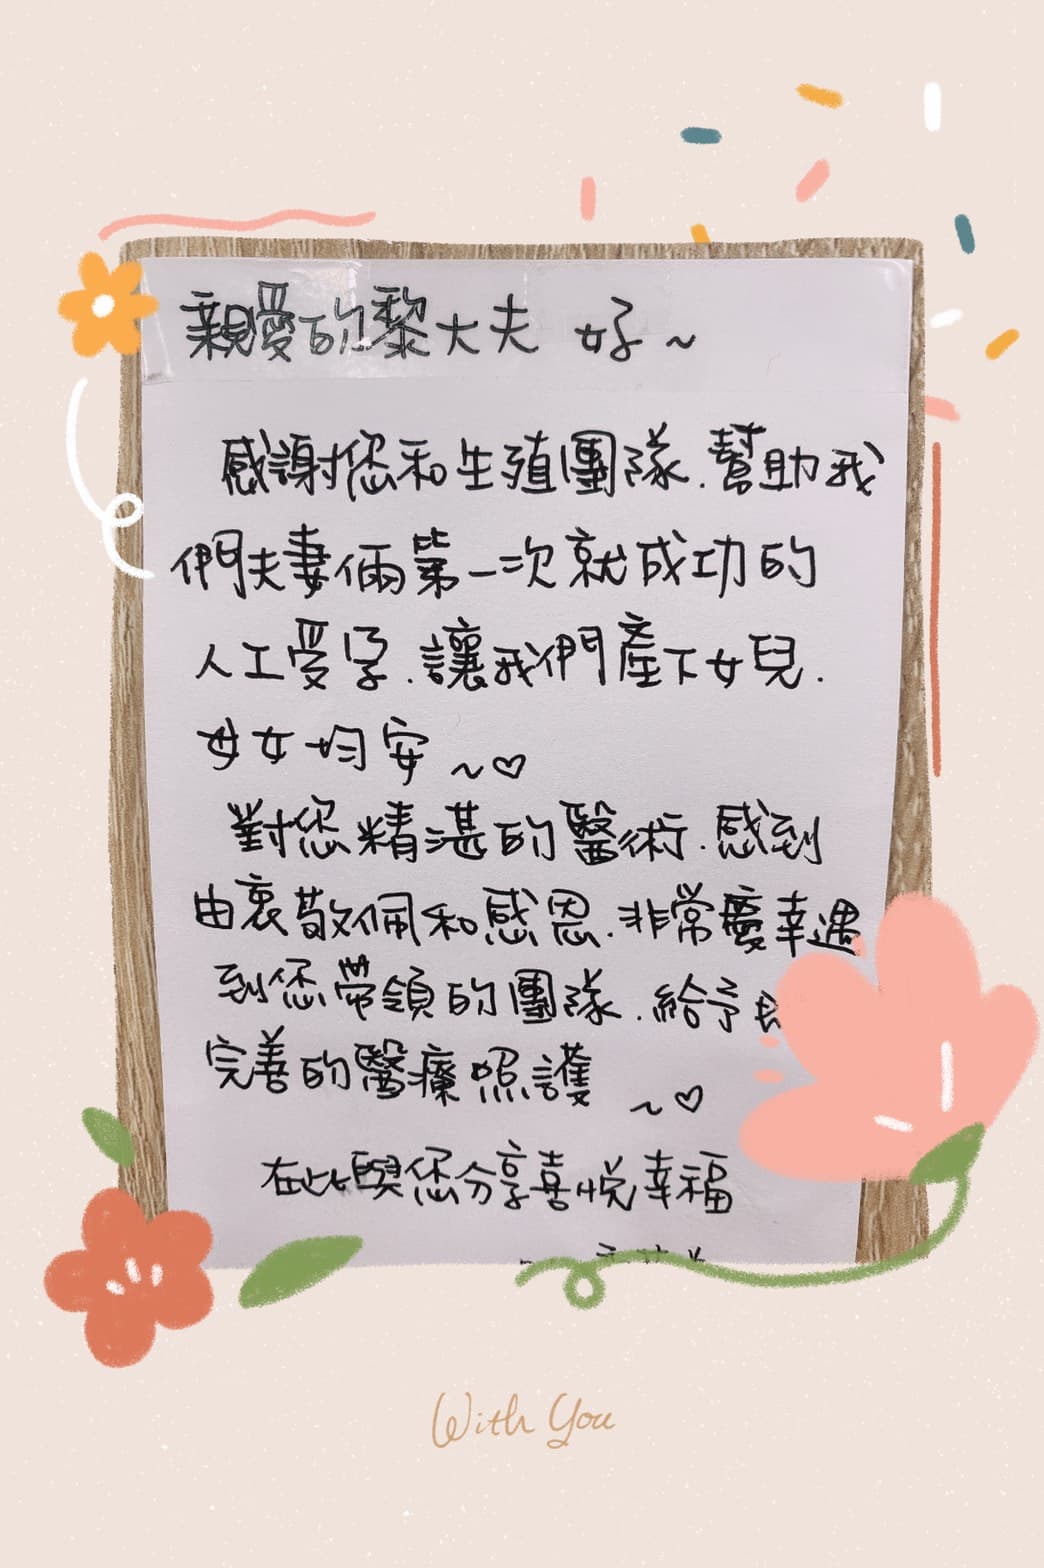 親愛的黎大夫 好~
感謝您和生殖團隊.幫助我
們夫妻倆第一次就成功的
人工受孕.讓我們產下女兒.
母女均安~♡
對您精湛的醫術.感到
由衷敬佩和感恩.非常慶幸遇
到您帶領的團隊.給予
完善的醫療照護 ~♡
在此與您分享喜悅幸福
With You